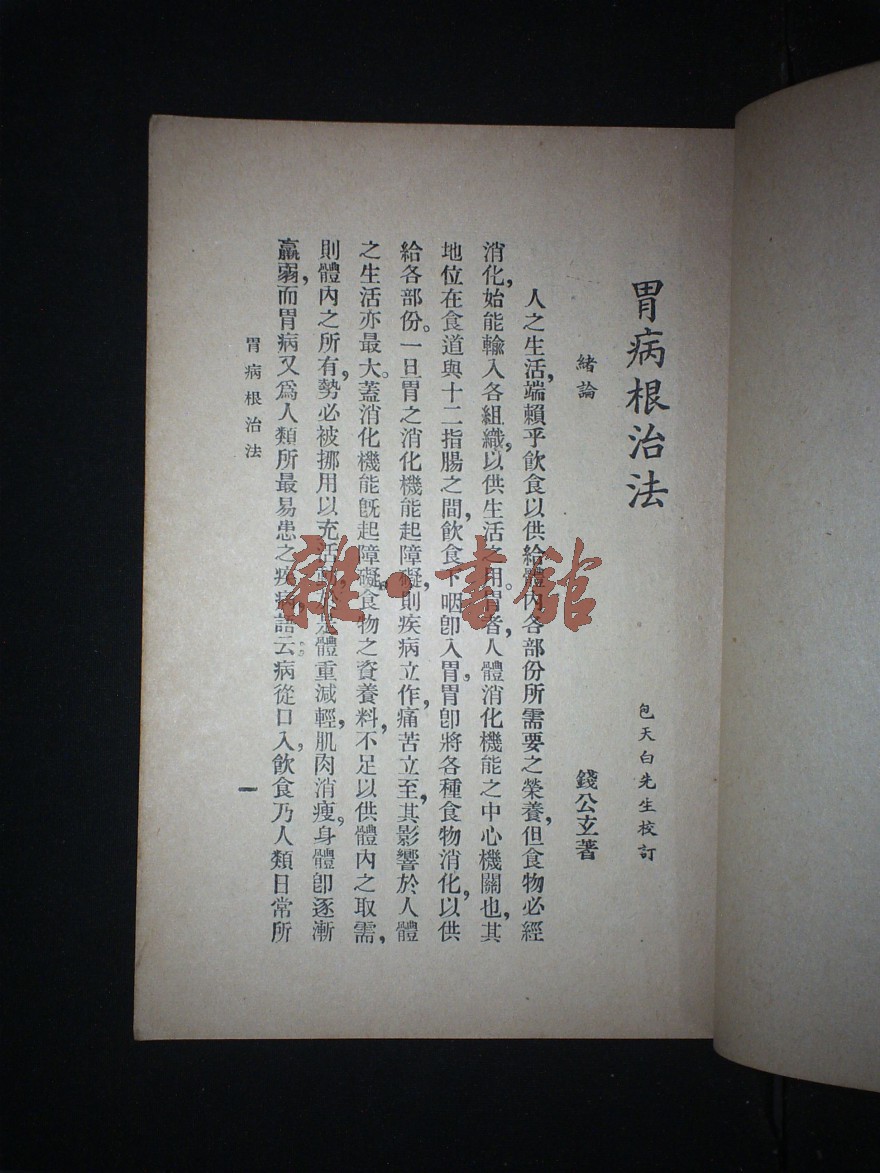 胃病根治法
包天白先生校訂
緒論
錢公玄著
人之生活，端賴乎飲食以供給體內各部份所需要之榮養，但食物必經
消化，始能輸入各組織，以供生活之用。胃者，人體消化機能之中心機關也，其
地位在食道與十二指腸之間，飲食下咽卽入胃，胃卽將各種食物消化，以供
給各部份。一旦胃之消化機能起障礙，則疾病立作，痛苦立至，其影響於人體
之生活亦最大。蓋消化機能旣起障礙，食物之資養料，不足以供體內之取需，
則體內之所有，勢必被挪用以充活體重減輕，肌肉消瘦。身體卽逐漸
羸弱，而胃病又爲人類所最易患之疾病，語云。病從口入，飲食乃人類日常所
胃病根治法
一
雜·書館